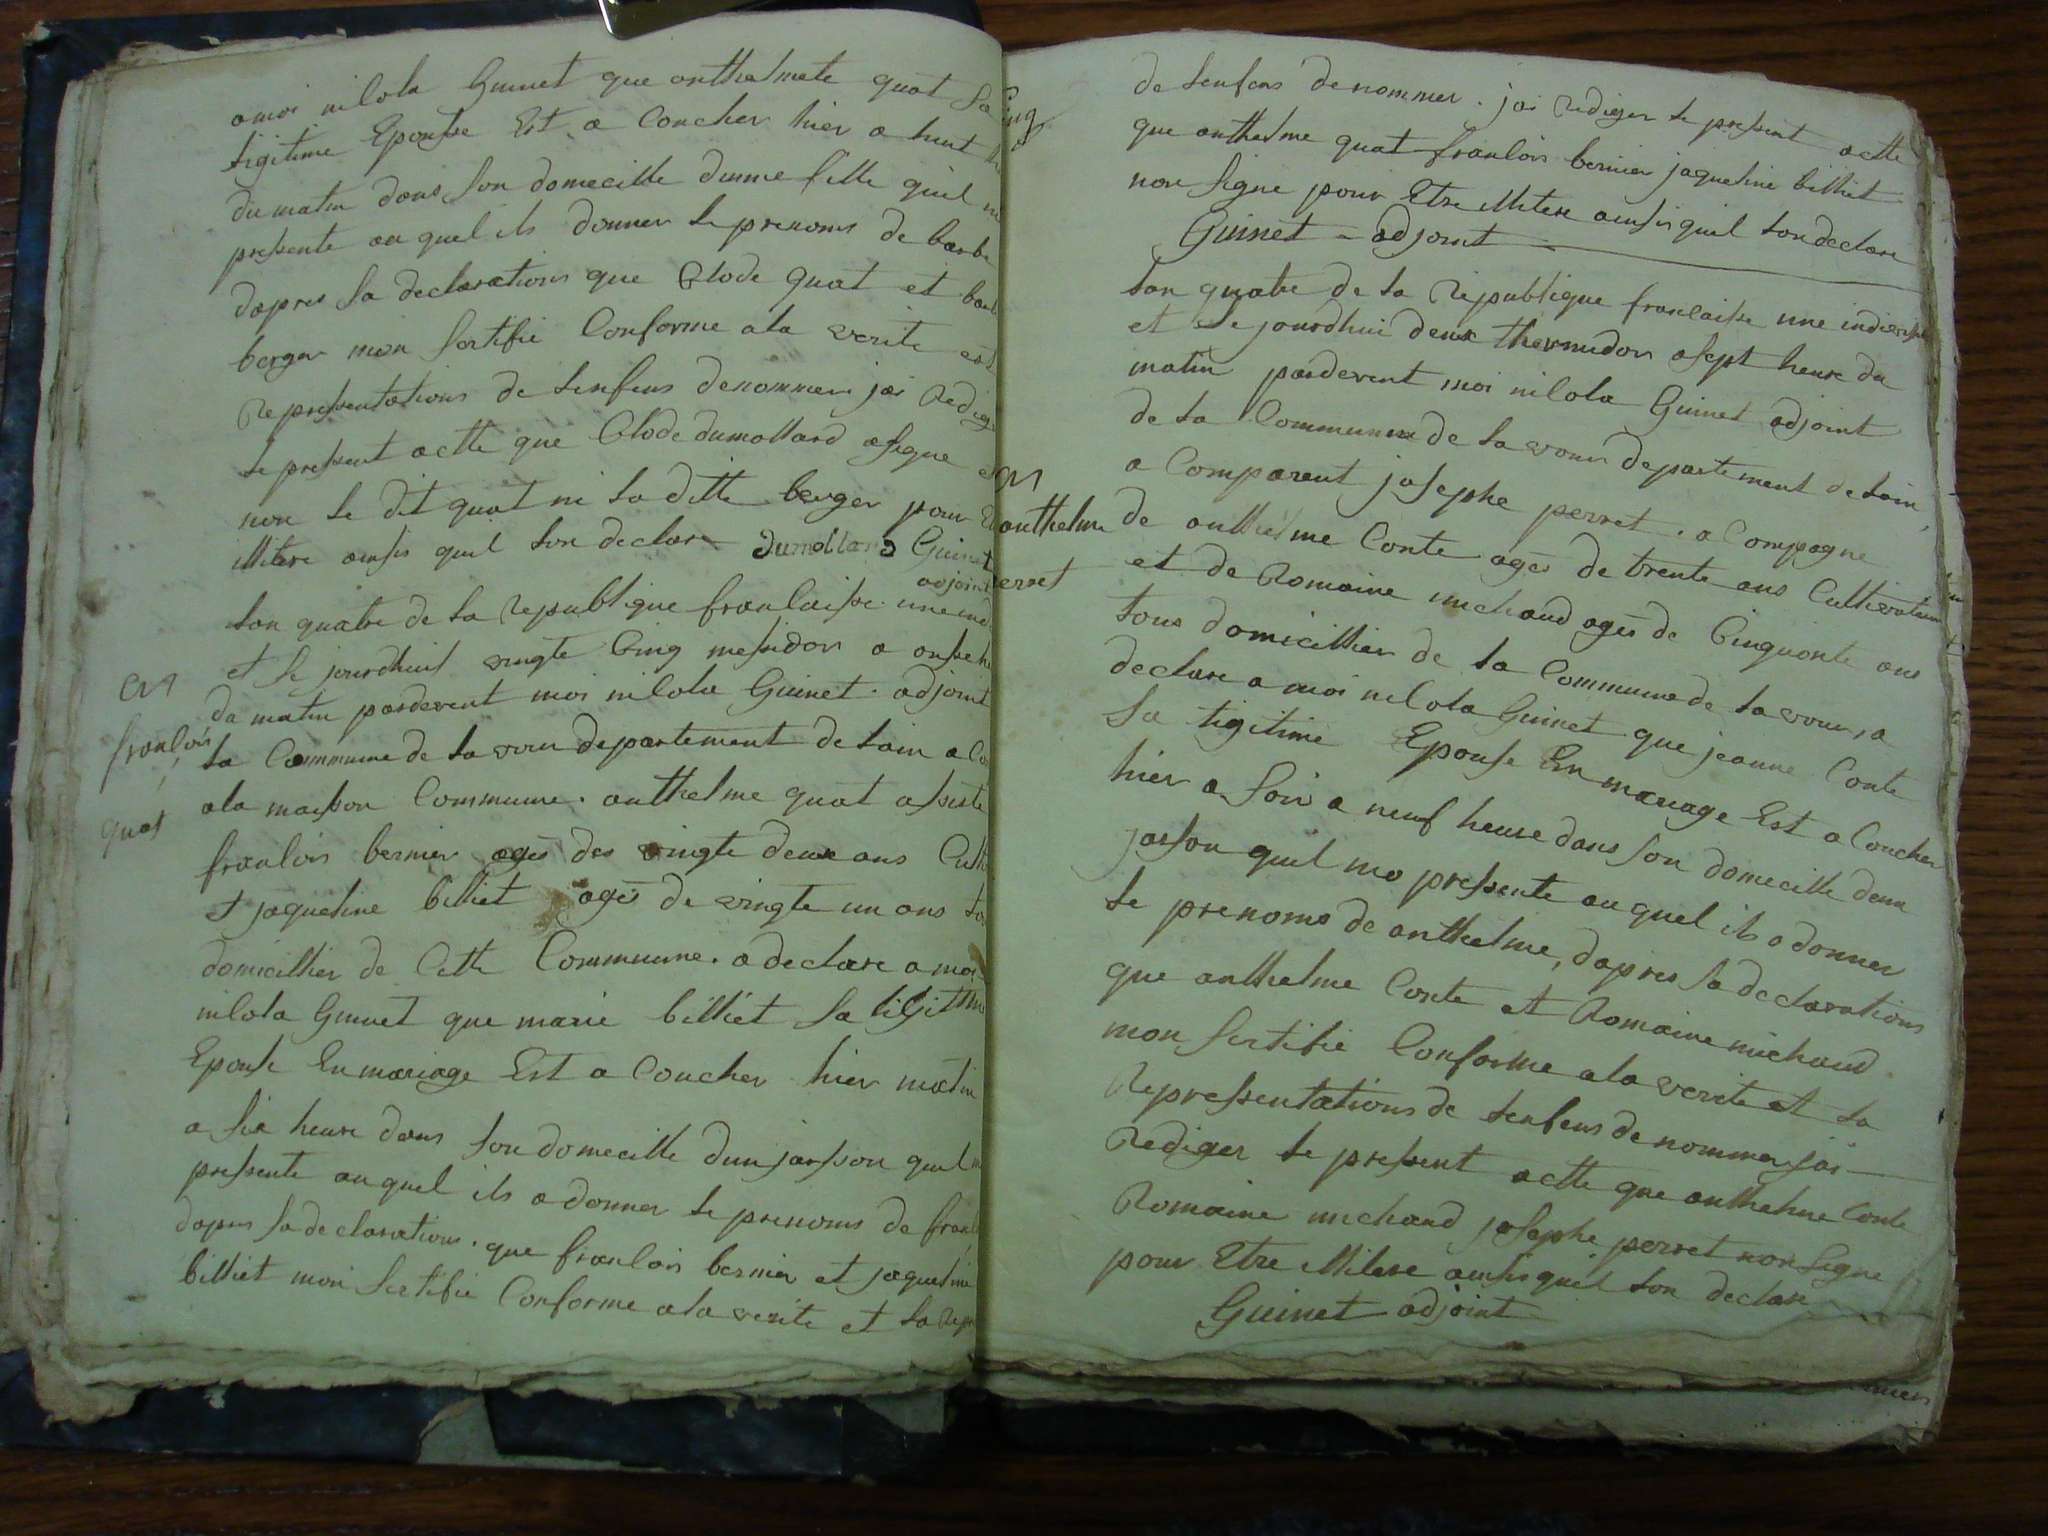 amoi nilola Guinet que anthelmete quat sa
ligitime Epousse Est a Coucher hier a huit
du matin dans son domecille dunne fille quil
pressente au quel ils donner le prenoms de barbe
dapres la declarations que Clode quat et
berger mon sertifie Conforme ala verite et
Representations de lenfens denommer jai Redige
le present actte que Clode dumollard asigne
non le dit quat ni la ditte berger pour
illitere ainsis quil lon declare dumollard Guinet
adjoint
lan quatre de la republique franlaisse une
et le jourdhuit vingte Cinq messidor a onse
du matin pardevent moi nilola Guinet adjoint
la Commune de la vour departement de lain a
ala maisson Commune. anthelme quat assiste
franlois bernier ages des vingte deux ans
et jaqueline billiet ages de vingte un ans
domicillier de Cette Commune. a declare a moi
nilola Guinet que marie billiet sa ligittime
Epouse En mariage Est a Coucher hier matin
a six heure dans son domecille dun jarsson quil
pressente au quel ils a donner le prenoms de
dapres la declarations. que franlois bernier et jaqueline
billiet mon sertifie Conforme ala verite et la
en
franlois
quat
de lenfens denommer. jai rediger le present actte
que anthelme quat franlois bernier jaqueline billiet
non signe pour Etre illitere ainsis quil lon declare
Guinet adjoint
lan quatre de la Republique franlaisse une
et le jourdhui deux thermidor a sept heure du
matin pardevent moi nilola Guinet adjoint
de la Commune de la vour departement de lain,
a Comparent josephe perret. a Compagne
de anthelme Conte ages de trente ans Cultivateur
et de Romaine michaud ages de Cinquante ans
tous domicillier de la Commune de la vour, a
declare a moi nilola Guinet que jeanne Conte
sa ligitime Epouse En mariage Est a Coucher
hier a soir a neuf heure dans son domecille dun
jarson quil ma pressente au quel ils a donner
le prenoms de anthelme, dapres la declarations
que anthelme Conte et Romaine michaud
mon sertifie Conforme ala verite et la
Representations de lenfens denommer jai
Rediger le present actte que anthelme Conte
Romaine michaud josephe perret non signe
pour Etre illitere ainsis quil lon declare
Guinet adjoint
anthelme
erret